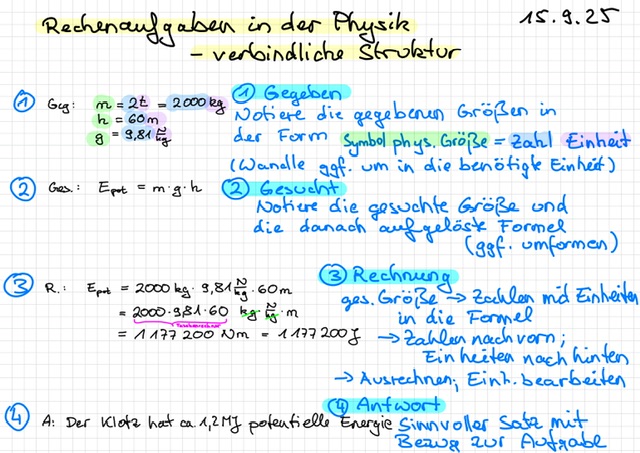 Rechenaufgaben in der Physik 15.9.25
– verbindliche Struktur
① Geg: m = 2t = 2000 kg
h = 60 m
g = 9,81 N/kg
① Gegeben
Notiere die gegebenen Größen in
der Form Symbol phys. Größe = Zahl Einheit
(Wandle ggf. um in die benötigte Einheit)
② Ges.: Epot = m·g·h
② Gesucht
Notiere die gesuchte Größe und
die danach aufgelöste Formel
(ggf. umformen)
③ R.: Epot = 2000 kg · 9,81 N/kg · 60 m
= 2000·9,81·60 kg · N/kg · m
Taschenrechner
= 1177200 Nm = 1177200 J
③ Rechnung
ges. Größe → Zahlen mit Einheiten
in die Formel
→ Zahlen nach vorn;
Einheiten nach hinten
→ Ausrechnen; Einh. bearbeiten
④ A: Der Klotz hat ca. 1,2 MJ potentielle Energie
④ Antwort
Sinnvoller Satz mit
Bezug zur Aufgabe